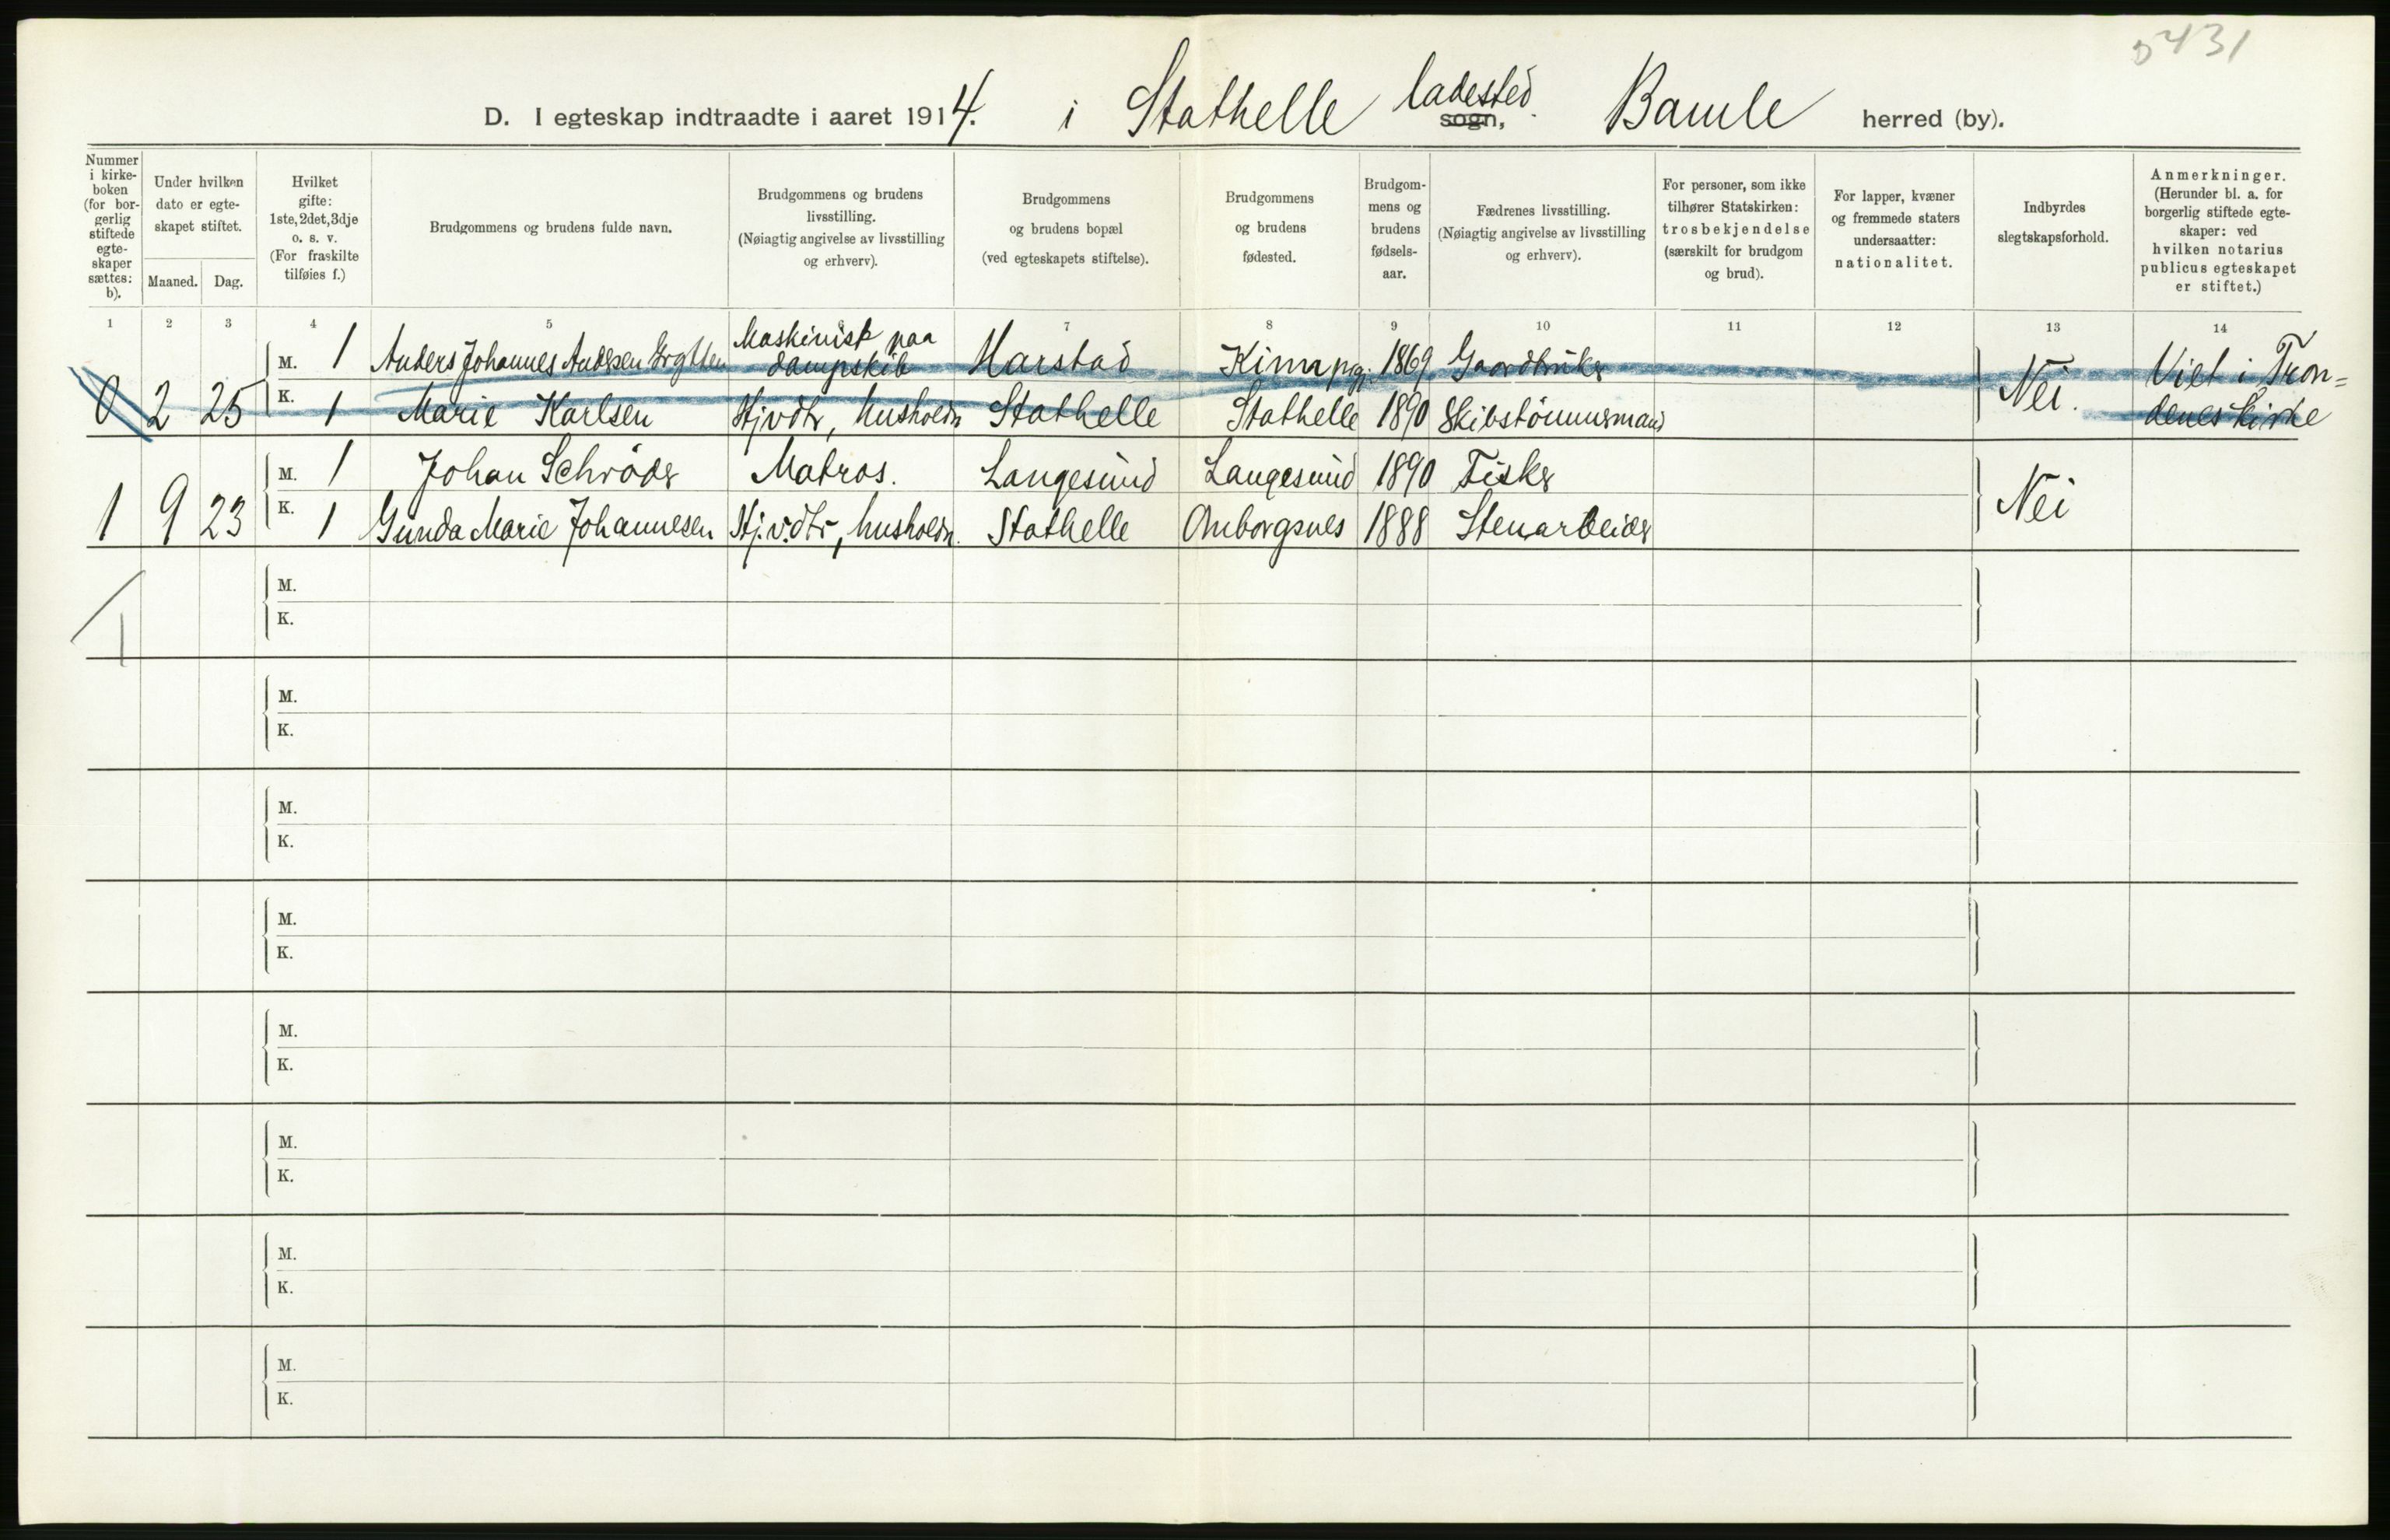 5431
D. I egteskap indtraadte i aaret 1914. i Stathelle ladested. sogn, Bamle herred (by).
Nummer i kirke-boken (for bor-gerlig stiftede egte-skaper sættes: b).
Under hvilken dato er egte-skapet stiftet.
Maaned. Dag.
Hvilket gifte: 1ste, 2det, 3dje o. s. v. (For fraskilte tilføies f.)
Brudgommens og brudens fulde navn.
Brudgommens og brudens livsstilling. (Nøiagtig angivelse av livsstilling og erhverv).
Brudgommens og brudens bopæl (ved egteskapets stiftelse).
Brudgommens og brudens fødested.
Brudgom-mens og brudens fødsels-aar.
Fædrenes livsstilling. (Nøiagtig angivelse av livsstilling og erhverv).
For personer, som ikke tilhører Statskirken: trosbekjendelse (særskilt for brudgom og brud).
For lapper, kvæner og fremmede staters undersaatter: nationalitet.
Indbyrdes slegtskapsforhold.
Anmerkninger. (Herunder bl. a. for borgerlig stiftede egte-skaper: ved hvilken notarius publicus egteskapet er stiftet.)
1 2 3 4 5 6 7 8 9 10 11 12 13 14
M. 1 Anders Johannes Andersen Maskinist paa dampskib Harstad 1869 Gaardbruker
0 2 25 K. 1 Marie Karlsen Hj.v.dtr, husholdn Stathelle Stathelle 1890 Skibstømmermand Nei. Viet i Tron=
denes kirke
M. 1 Johan Schrøder Matros. Langesund Langesund 1890 Fisker
1 9 23 K. 1 Gunda Marie Johannesen Hj.v.dtr, husholdn. Stathelle Omborgsnes 1888 Stenarbeider Nei
1
M.
K.
M.
K.
M.
K.
M.
K.
M.
K.
M.
K.
M.
K.
M.
K.